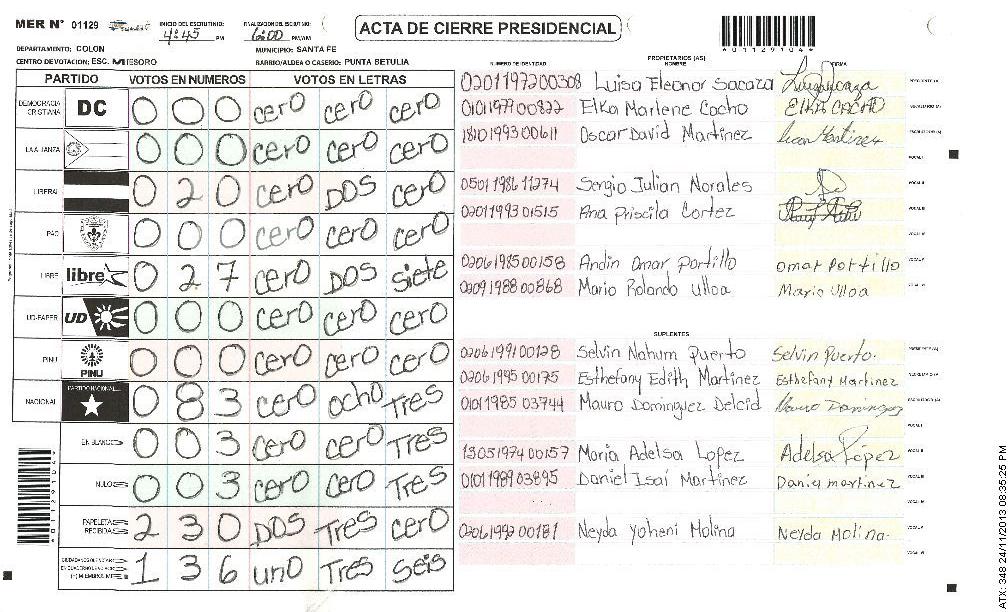 MER N° 01129
INICIO DEL ESCRUTINIO: 4:45 PM
FINALIZACION DEL ESCRUTINIO: 6:00 PM/AM
ACTA DE CIERRE PRESIDENCIAL
4 0 1 1 2 9 1 0 4
DEPARTAMENTO: COLON
MUNICIPIO: SANTA FE
CENTRO DE VOTACION: ESC. MI TESORO
BARRIO/ALDEA O CASERIO: PUNTA BETULIA
PARTIDO VOTOS EN NUMEROS VOTOS EN LETRAS
DEMOCRACIA CRISTIANA DC 0 0 0 cero cero cero
LA ALIANZA 0 0 0 cero cero cero
LIBERAL 0 2 0 cero DOS cero
PAC 0 0 0 cero cero cero
LIBRE libre 0 2 7 cero DOS siete
UD-FAPER UD 0 0 0 cero cero cero
PINU PINU 0 0 0 cero cero cero
NACIONAL PARTIDO NACIONAL 0 8 3 cero ocho Tres
EN BLANCO 0 0 3 cero cero Tres
NULOS 0 0 3 cero cero Tres
PAPELETAS RECIBIDAS 2 3 0 DOS Tres cero
1 3 6 uno Tres seis
NUMERO DE IDENTIDAD PROPIETARIOS (AS) NOMBRE FIRMA
0201197200308 Luisa Eleonor Sacaza
0101197700822 Elka Marlene Cacho ELKA CACHO
1810199300611 Oscar David Martinez Oscar Martinez
0501198611274 Sergio Julian Norales
0201199301515 Ana Priscila Cortez
0206198500158 Andin Omar Portillo Omar Portillo
0209198800868 Mario Rolando Ulloa Mario Ulloa
SUPLENTES
0206199100128 Selvin Nahum Puerto Selvin Puerto.
0206199500175 Esthefany Edith Martinez Esthefany Martinez
0101198503744 Mauro Dominguez Delcid Mauro Dominguez
1305197400157 Maria Adelsa Lopez Adelsa Lopez
0101198903895 Daniel Isaí Martinez Daniel martinez
0206199200181 Neyda Yoheni Molina Neyda Molina.
4 0 1 1 2 9 1 0 4
ATX: 348 24/11/2013 08:35:25 PM